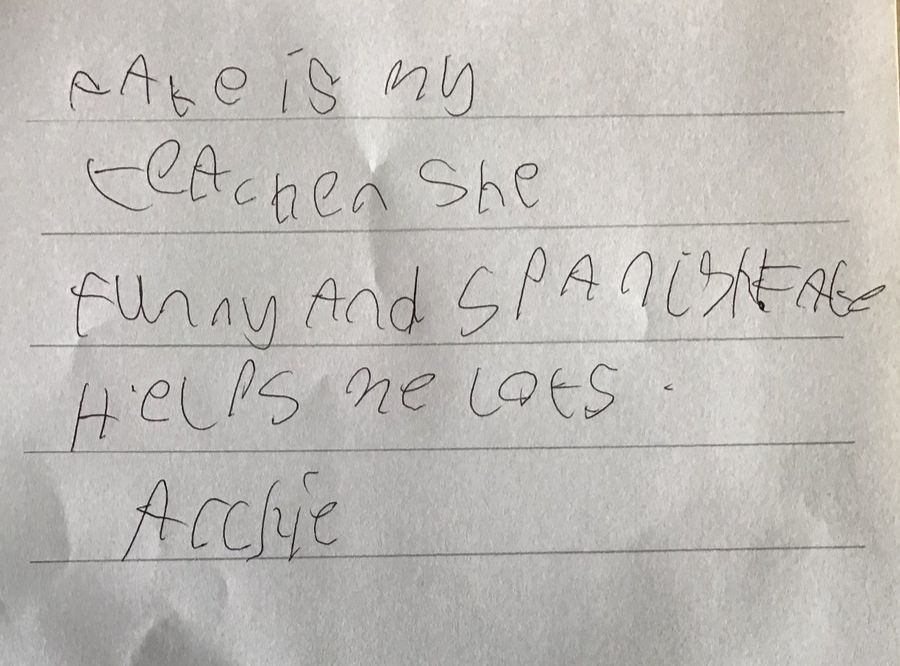 RAte is my
teAcher She
funny And SPAnish FAte
HeLPS me Lots.